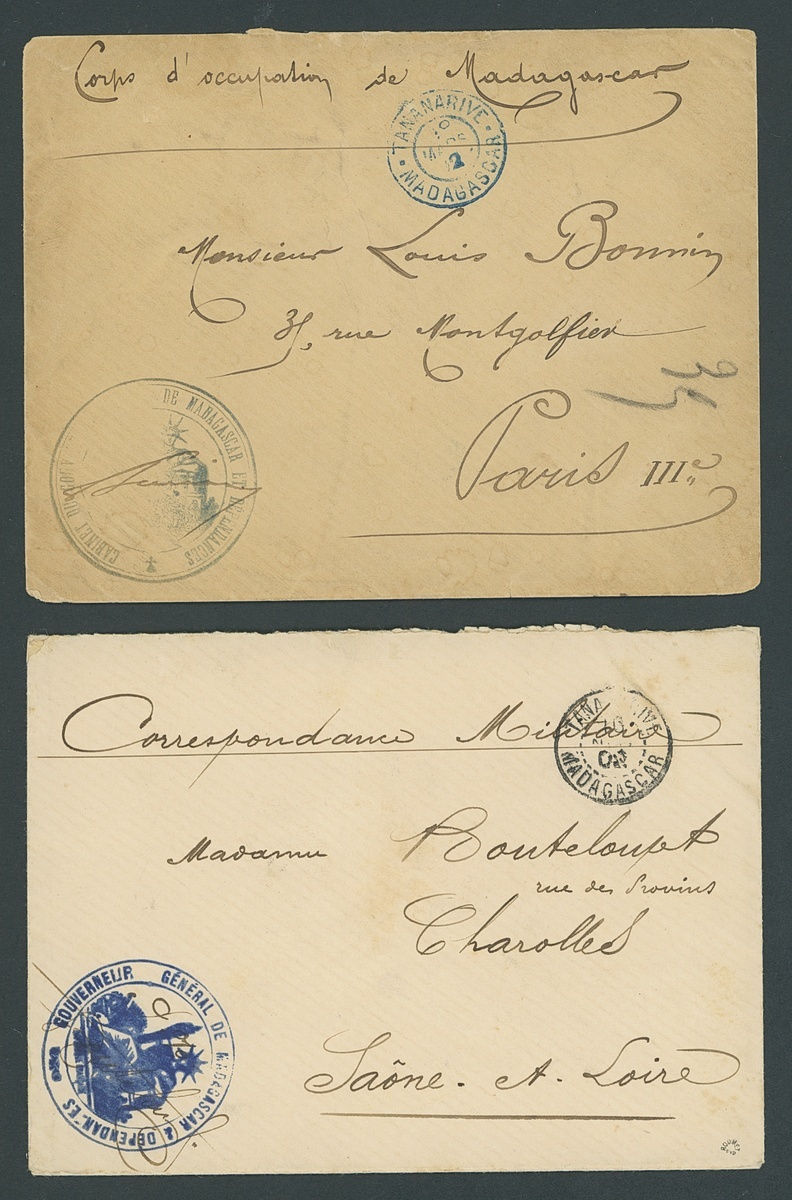 Corps d'occupation de Madagascar
TANANARIVE
MARS
MADAGASCAR
Monsieur Louis Bonnin
35, rue Montgolfier
35
Paris IIIe
CABINET DU DE MADAGASCAR ET DÉPENDANCES
Correspondance Militaire
TANANARIVE
MADAGASCAR
Madame Bouteloupt
rue des Provins
Charolles
GOUVERNEUR GÉNÉRAL DE MADAGASCAR & DÉPENDANCES
Saône-et-Loire